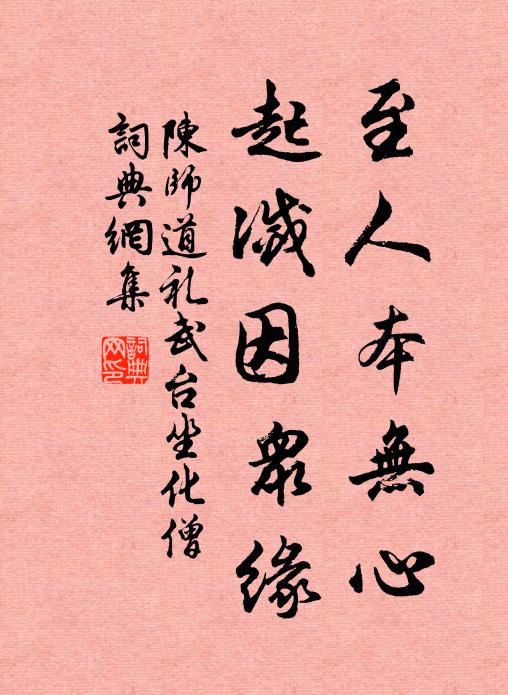 至人本無心
起滅因衆緣
陳師道礼武台坐化僧
詞典網集
詞典網印